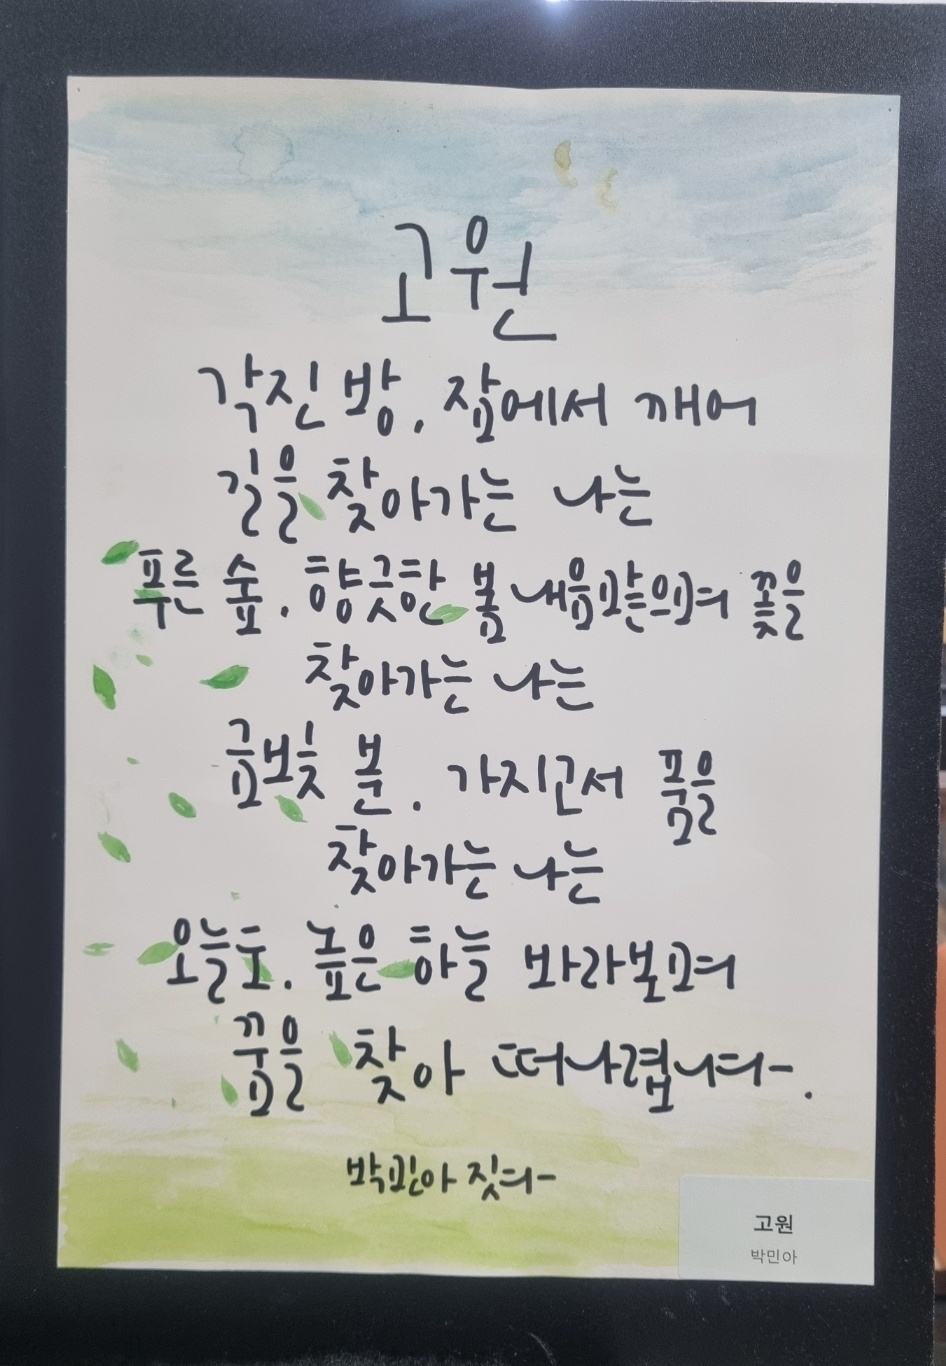 고원
각진 방, 잠에서 깨어
길을 찾아가는 나는
푸른 숲, 향긋한 봄내음 맡으며 꽃을
찾아가는 나는
금보빛 분, 가지고서 품을
찾아가는 나는
오늘도, 높은 하늘 바라보며
꿈을 찾아 떠나렵니다.
박민아 짓다
고원
박민아